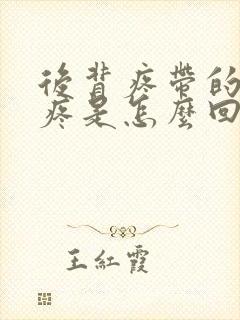 後背疼帶的
疼是怎麼回
王紅霞